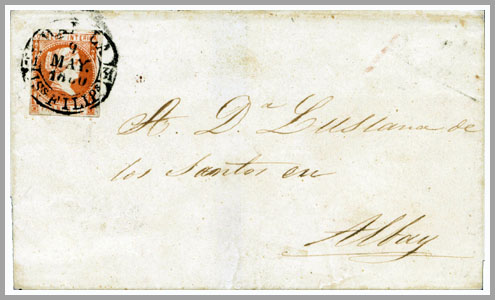 INTER
9
MAY.
1860
ISS FILIPS
A. Da Lusiana de
los Santos en
Albay